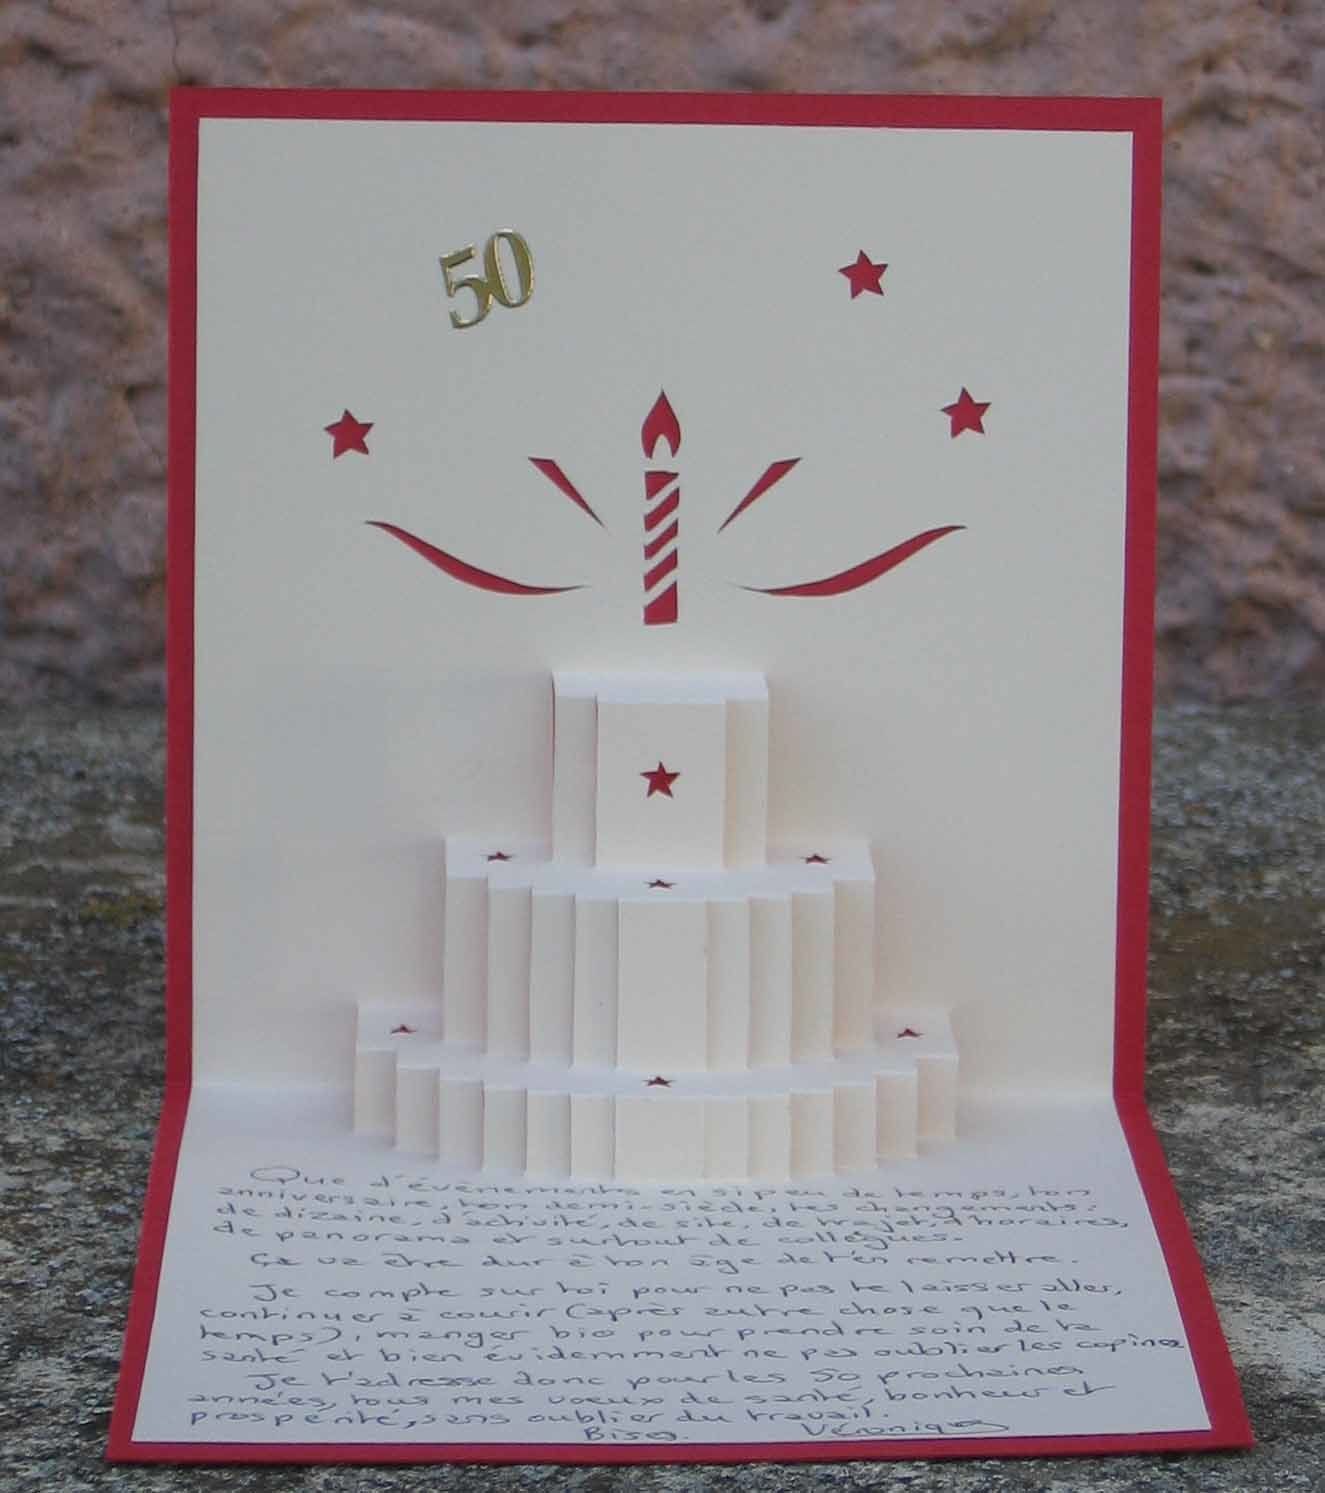 50
Que d'évènements en si peu de temps, ton
anniversaire, ton demi-siècle, tes changements:
de dizaine, d'activité, de site, de trajet, d'horaires,
de panorama et surtout de collègues.
Ça va être dur à ton âge de t'en remettre.
Je compte sur toi pour ne pas te laisser aller,
continuer à courir (après autre chose que le
temps), manger bio pour prendre soin de ta
santé et bien évidemment ne pas oublier les copines
Je t'adresse donc pour les 50 prochaines
années, tous mes voeux de santé, bonheur et
prospérité, sans oublier du travail.
Bises. Véronique